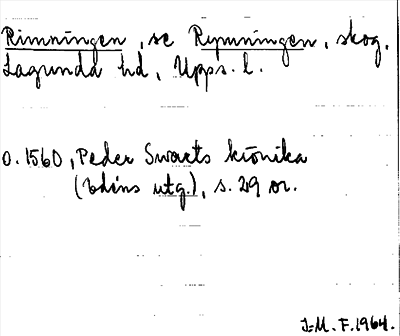 Rimningen, se Rymningen, skog,
Lagunda hd, Upps. l.
o. 1560, Peder Swarts krönika
(Edéns utg.), s. 29 or.
I-M. F. 1964.